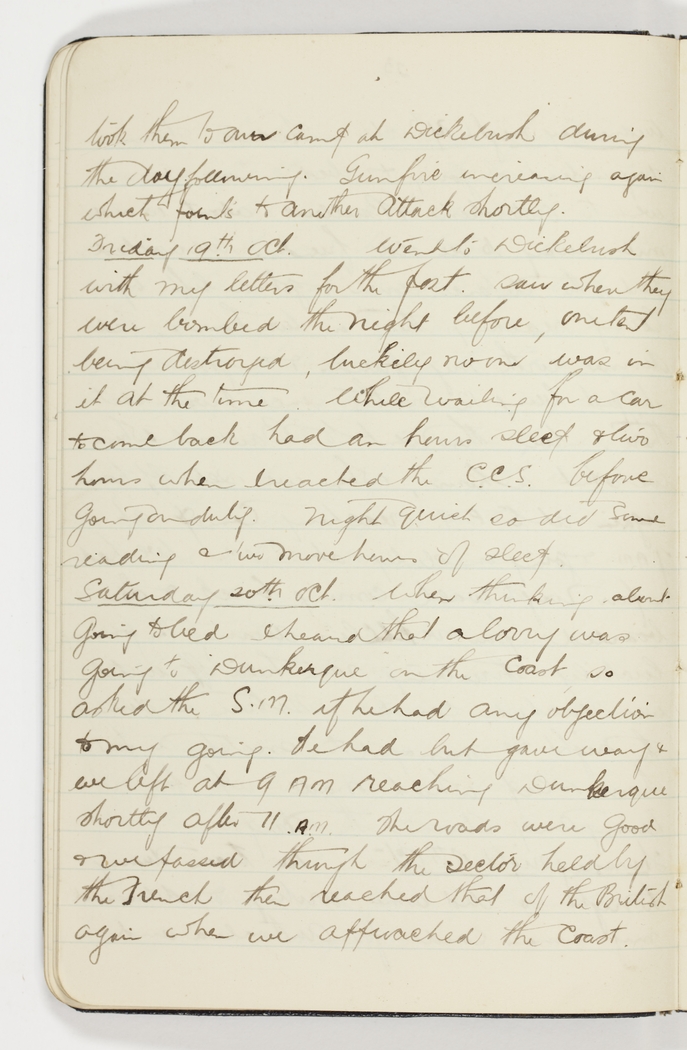 took them to our camp at Dickebush during
the day following. Gunfire increasing again
which points to another attack shortly.
Friday 19th Oct. Went to Dickebush
with my letters for the post. Saw where they
were bombed the night before, one tent
being destroyed, luckily no one was in
it at the time. While waiting for a car
to come back had an hours sleep & two
hours when I reached the C.C.S. before
going on duty. Night quiet so did some
reading & two more hours of sleep.
Saturday 20th Oct. When thinking about
going to bed I heard that a lorry was
going to Dunkerque on the Coast, so
asked the S.M. if he had any objection
to my going. He had but gave way &
we left at 9 AM reaching Dunkerque
shortly after 11 A.M. The roads were good
& we passed through the sector held by
the French then reached that of the British
again when we approached the Coast.